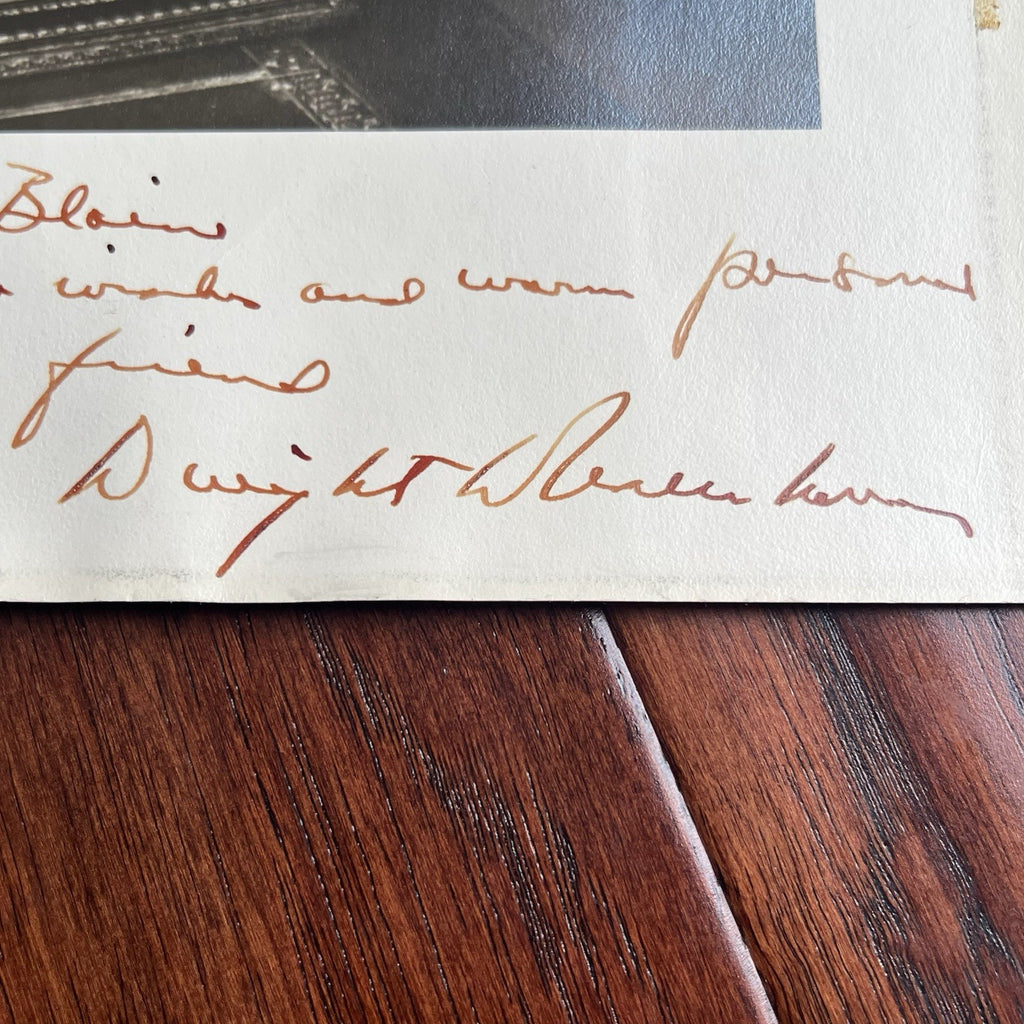 Blaine
wishes and warm personal
friend
Dwight D Eisenhower